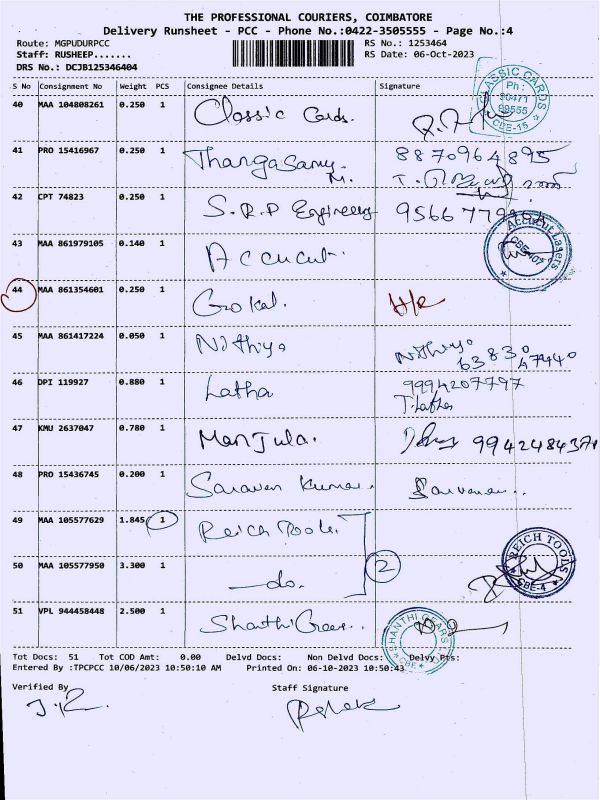 THE PROFESSIONAL COURIERS, COIMBATORE
Delivery Runsheet - PCC - Phone No.:0422-3505555 - Page No.:4
Route: MGPUDURPCC RS No.: 1253464
Staff: RUSHEEP....... RS Date: 06-Oct-2023
DRS No.: DCJB125346404
S No Consignment No Weight PCS Consignee Details Signature
40 MAA 104808261 0.250 1 Classic Cards.
CLASSIC CARDS Ph: CBE-15
41 PRO 15416967 0.250 1 Thangasamy. M. 8870964895
42 CPT 74823 0.250 1 S.R.P Engineering 9566779
43 MAA 861979105 0.140 1 Accucut. Accucut Lasers
44 MAA 861354601 0.250 1 Gokal. H/R
45 MAA 861417224 0.050 1 Nithiya Nithiya 63830 47440
46 DPI 119927 0.880 1 Latha 9994207797
T.Latha
47 KMU 2637047 0.780 1 Manjula. 9942484371
48 PRO 15436745 0.200 1 Saravan Kumar. Sarvanan..
49 MAA 105577629 1.845 1 Reich Tools.
50 MAA 105577950 3.300 1 —do. 2 REICH TOOLS CBE-4
51 VPL 944458448 2.500 1 Shanthi Gears.. SHANTHI GEARS CBE
Tot Docs: 51 Tot COD Amt: 0.00 Delvd Docs: Non Delvd Docs: Delvy Pts:
Entered By :TPCPCC 10/06/2023 10:50:10 AM Printed On: 06-10-2023 10:50:43
Verified By Staff Signature